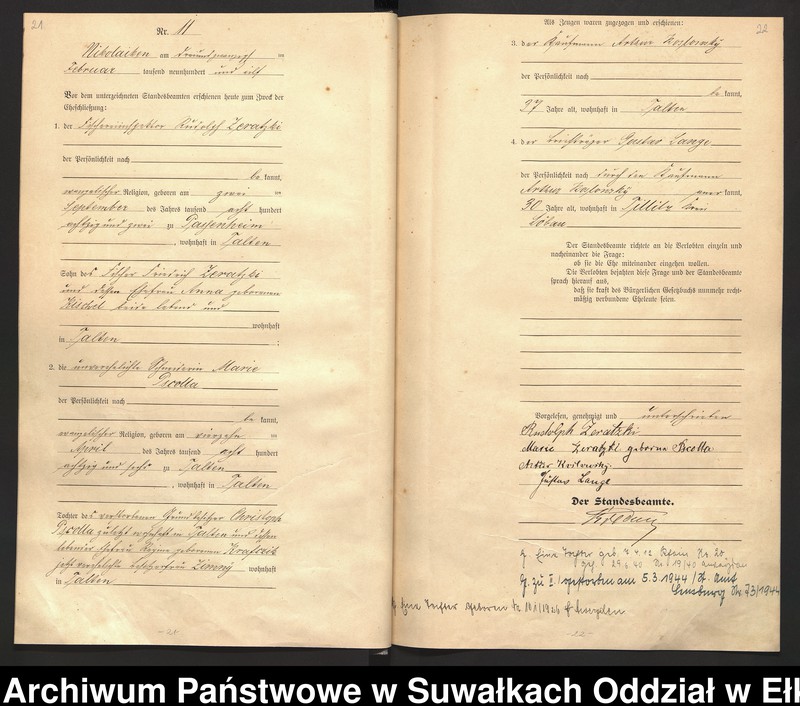 21.
Nr. 11
Nikolaiken am dreiundzwanzigsten
Februar tausend neunhundert und elf
Vor dem unterzeichneten Standesbeamten erschienen heute zum Zweck der
Eheschließung:
1. der Fischereiinspektor Rudolph Zeratzki
der Persönlichkeit nach
be kannt,
evangelischer Religion, geboren am zwei
September des Jahres tausend acht hundert
achtzig und zwei zu
, wohnhaft in Talten
Sohn des Fischer Friedrich Zeratzki
und dessen Ehefrau Anna geborenen
beide lebend und
wohnhaft
in Talten ;
2. die unverehelichte Schneiderin Marie
Pscolla
der Persönlichkeit nach
be kannt,
evangelischer Religion, geboren am vierzehn
April des Jahres tausend acht hundert
achtzig und sechs zu Talten
, wohnhaft in Talten
Tochter des verstorbenen Grundbesitzer Christoph
Pscolla zuletzt wohnhaft in Talten und dessen
lebenden Ehefrau Regine geborenen
jetzt verehelichte wohnhaft
in Talten
- 21 -
22
Als Zeugen waren zugezogen und erschienen:
3. der Kaufmann Arthur Koslowsky
der Persönlichkeit nach
be kannt,
37 Jahre alt, wohnhaft in Talten
4. der Briefträger Gustav Lange
der Persönlichkeit nach durch den Kaufmann
Arthur Koslowsky aner kannt,
30 Jahre alt, wohnhaft in Tillitz Kreis
Löbau
Der Standesbeamte richtete an die Verlobten einzeln und
nacheinander die Frage:
ob sie die Ehe miteinander eingehen wollen.
Die Verlobten bejahten diese Frage und der Standesbeamte
sprach hierauf aus,
daß sie kraft des Bürgerlichen Gesetzbuchs nunmehr recht-
mäßig verbundene Eheleute seien.
Vorgelesen, genehmigt und unterschrieben
Rudolph Zeratzki
Marie Zeratzki geborne Pscolla
Arthur Koslowsky
Gustav Lange
Der Standesbeamte.
Eine Tochter geb.
zu I gestorben am 5.3.1944 St. Amt
Sensburg Nr. 73/1944
Eine Tochter geboren
- 22 -
Archiwum Państwowe w Suwałkach Oddział w Ełk